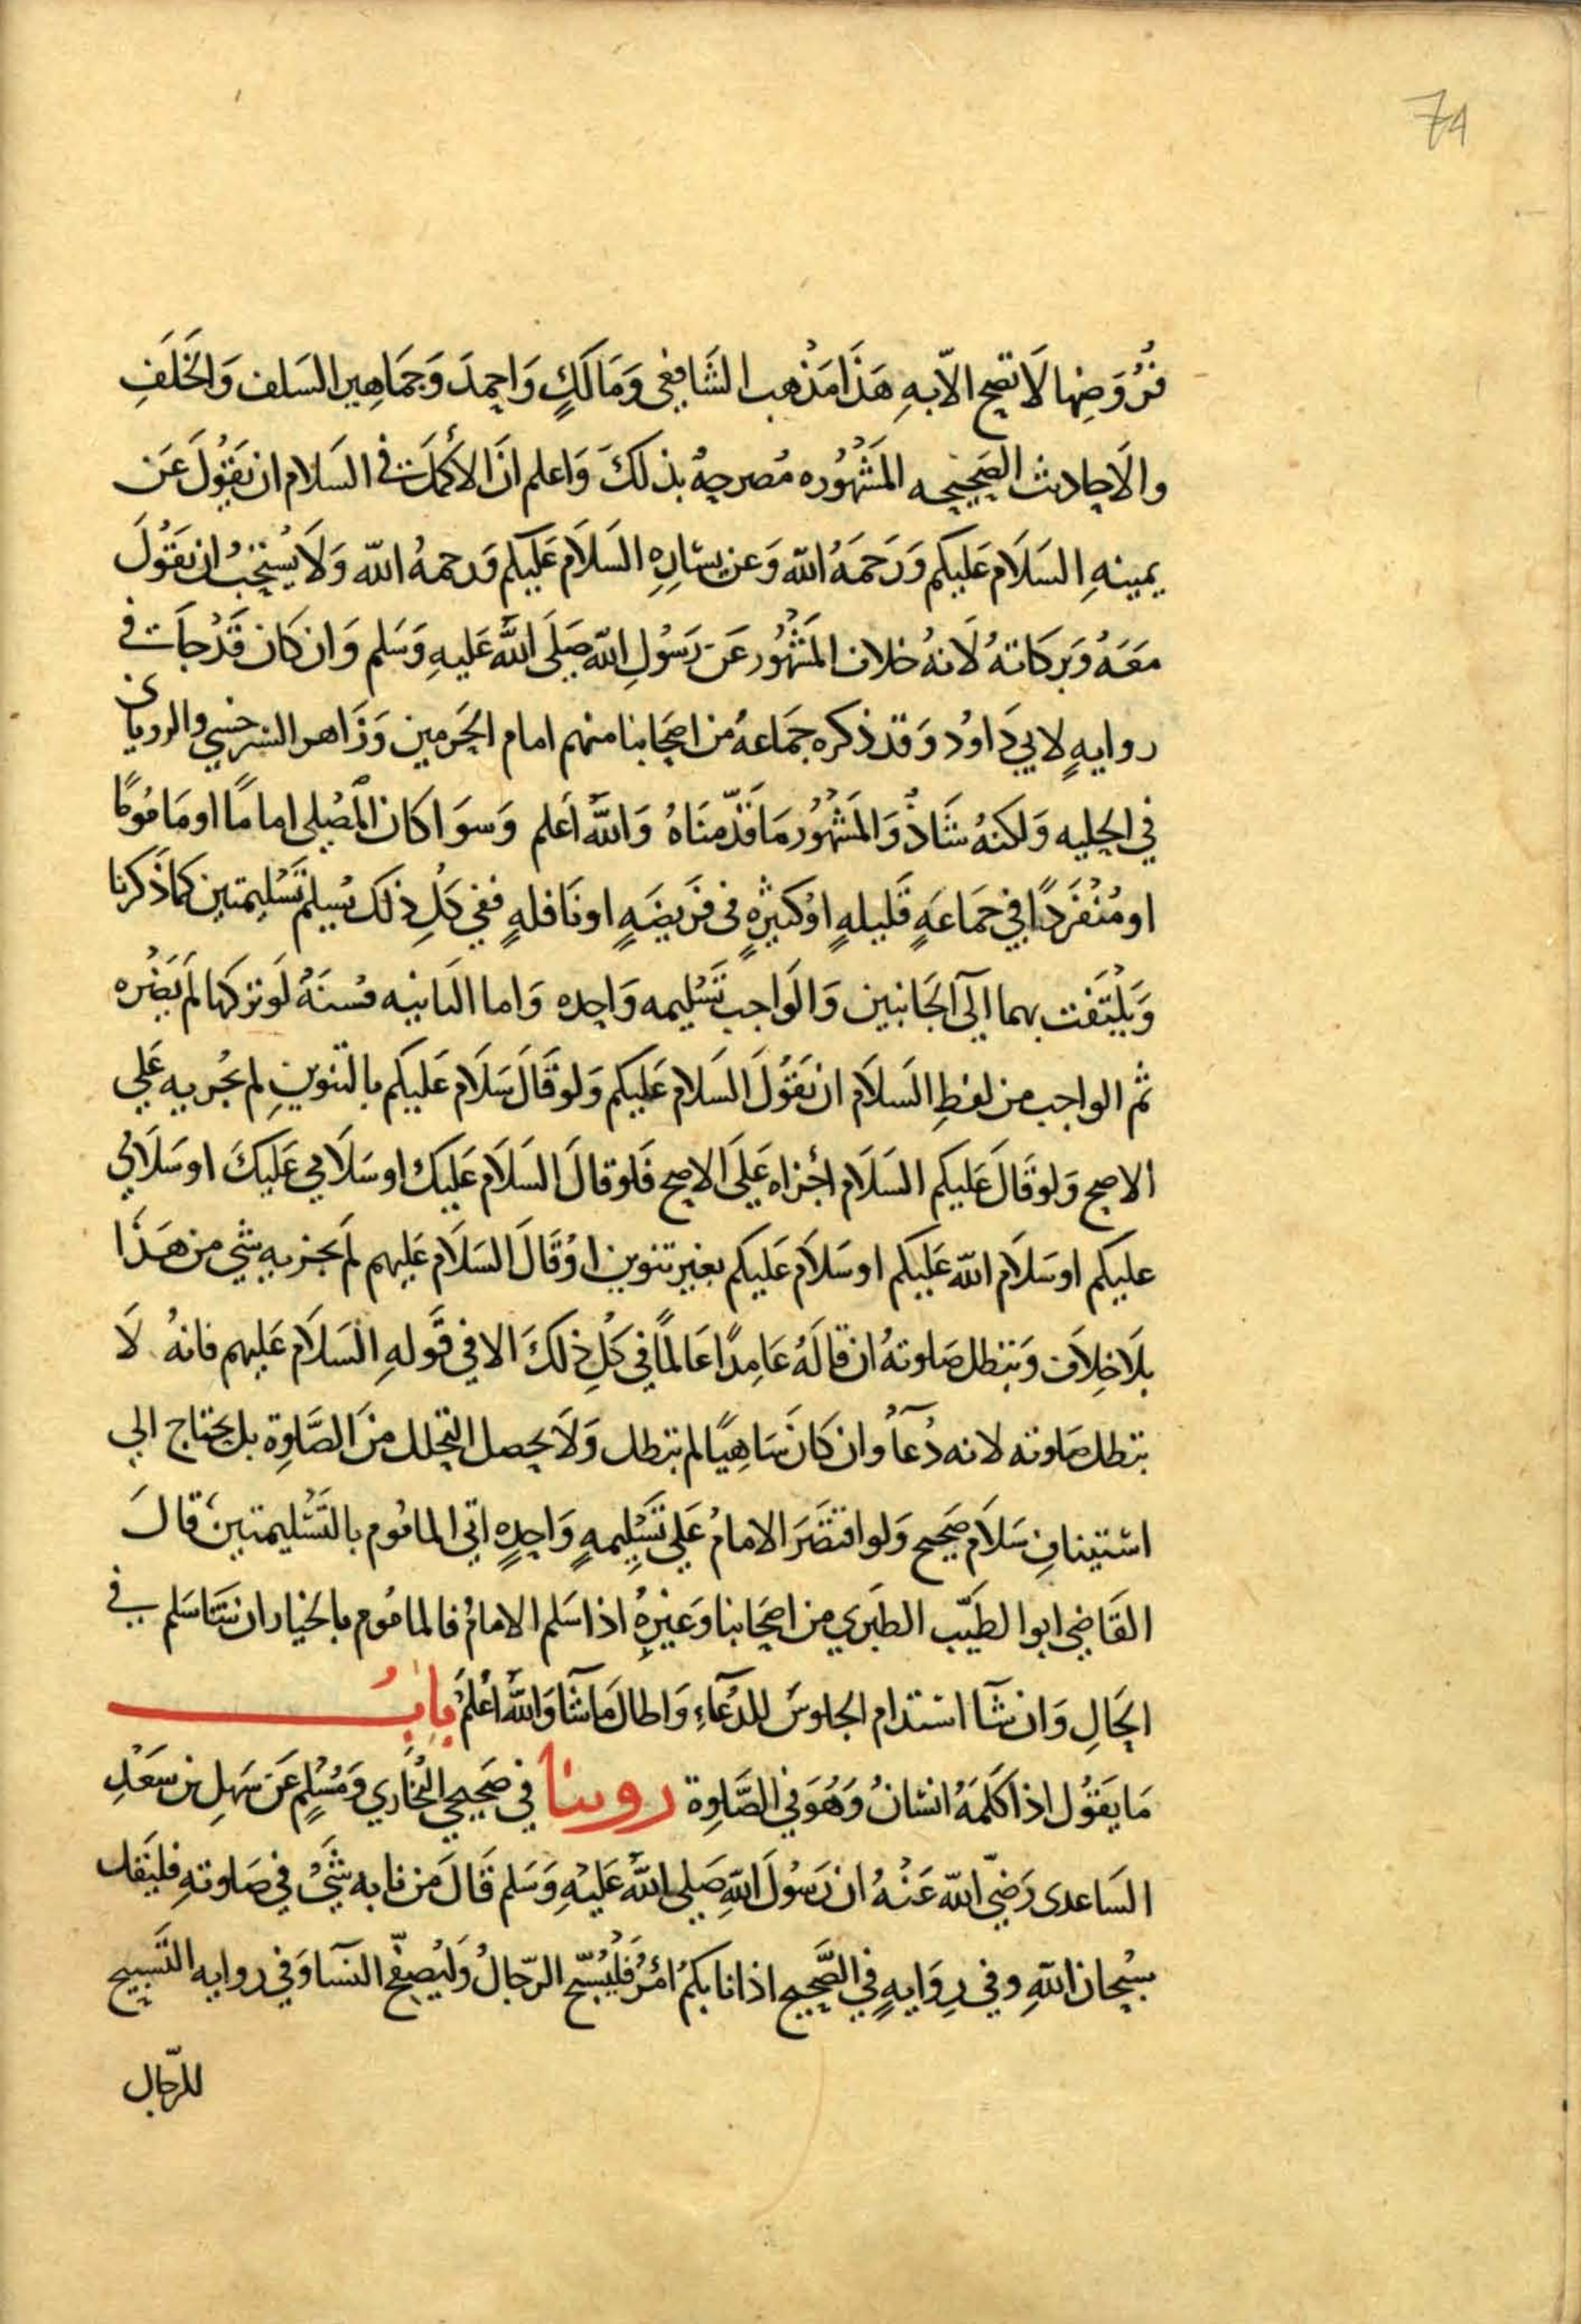 74
فُرُوَضِها لَا تصح الاّ بهِ هَذَا مَذْهب الشَافِعِى وَمَالَكٍ وَاحِمدَ وَجَمَاهِير السَلف وَالخَلَفِ
والَاحادِيث الصَحِيحِه المَشْهُوره مُصرحِهُ بذلكَ وَاعلم انَ الأكمَلَ فى السَلام ان يَقوُلَ عَن
يمينهِ السَلَام عَليكم وَرَحمَهُ الله وَعن يسَارِهِ السَلَام عَليكم وَرحمهُ الله وَلَا يُستحَبُ ان يقَوُلَ
معَهُ وَبركاتهُ لَانهُ خلاف المَشْهُور عَن رَسُولِ الله صَلَى اللَّه عَليهِ وَسَلم وَان كَان قَدْ جاَت فى
روايهٍ لابي دَاوُد وَقد ذكره جَمَاعهُ من اصحَابنا منهم امام الحَرمين وَزَاهر السرخسي والرويانى
في الحِليه وَلكنهُ شَاذُ وَالمَشْهُور مَا قَدّمنَاهُ وَاللَّه أعَلم وَسوَا كَان المُصَلى امامًا او مَامُومًا
او مُنْفَردًا في جمَاعَهٍ قَليلهٍ اوْ كثِيرهٍ فى فرَيضَهٍ او نَافلهٍ ففي كلِ ذلكَ يُسِلم تَسْليمتين كما ذَكرنا
وَيَلْتَفت بهما الَى الجَانبين وَالوَاجب تَسْليمه وَاحِده وَاما الثانيه فسنَهُ لَو تركها لَم يَضُره
ثم الواجب من لفظِ السَلَام ان يَقوُلَ السَلام عَليكم وَلو قَالَ سَلَام عَليكم بالتنوينِ لم يجُزيه عَلي
الاصح وَلو قَالَ عَليكم السَلَام اجْزاه عَلَى الاصح فَلو قالَ السَلَام عَليك او سَلَامي عَليكَ او سَلَامي
عليكم او سَلَام الله عَليكم او سَلَام عَليكم بغير تنوين اوْ قَالَ السَلَام عَليهم لَم يجزيه شي من هَذَا
بلَا خِلَاف وَتبطل صَلوتهُ ان قالَهُ عَامِدًا عَالمًا في كَلِ ذلكَ الا في قَولهِ السَلَام عَليهم فانهُ لَا
تبطل صَلوته لانه دُعَآُ وان كَانَ سَاهِيًا لم تبطل وَلَا يحصل التحلل منَ الصَّلَوِة بل يحتاج الي
اسْتينافِ سَلَام صَحِيح وَلو اقتصَرَ الامامُ عَلي تَسَليمهٍ وَاحِدهٍ اتى المامُوم بالتَسْليمتينَ قالَ
القَاضي ابوا لطَيّب الطبَري من اصحَابنا وَغيرِهُ اذا سَلم الامامُ فالمامُوم بالخيار ان شَا سَلم في
الحَالِ وَان شَآ استدام الجلوسَ للدُعَآءِ وَاطالَ مَا شَآ وَاللَّه اعْلمَ بابُ
مَا يقَوُل اذا كَلمَهُ انسَانُ وَهُوَ في الصَّلَوِة روينا في صَحِيحي البُخَارِي وَمُسْلِم عَن سَهلِ بن سَعَدِ
السَاعدى رَضيَ الله عَنْهُ ان رَسُولَ اللهِ صَلي اللَّه عَليْهِ وَسَلم قَالَ مَن نابه شَيْ في صَلوتهِ فليَقل
سُبحان اللهِ وفي رِوَايهٍ في الصَّحِيح اذا نابكمُ امْرُ فَلْيُسَبّح الرّجالُ وَليُصفّح النسَآ وَفي روايه التَسبيح
للرّجال